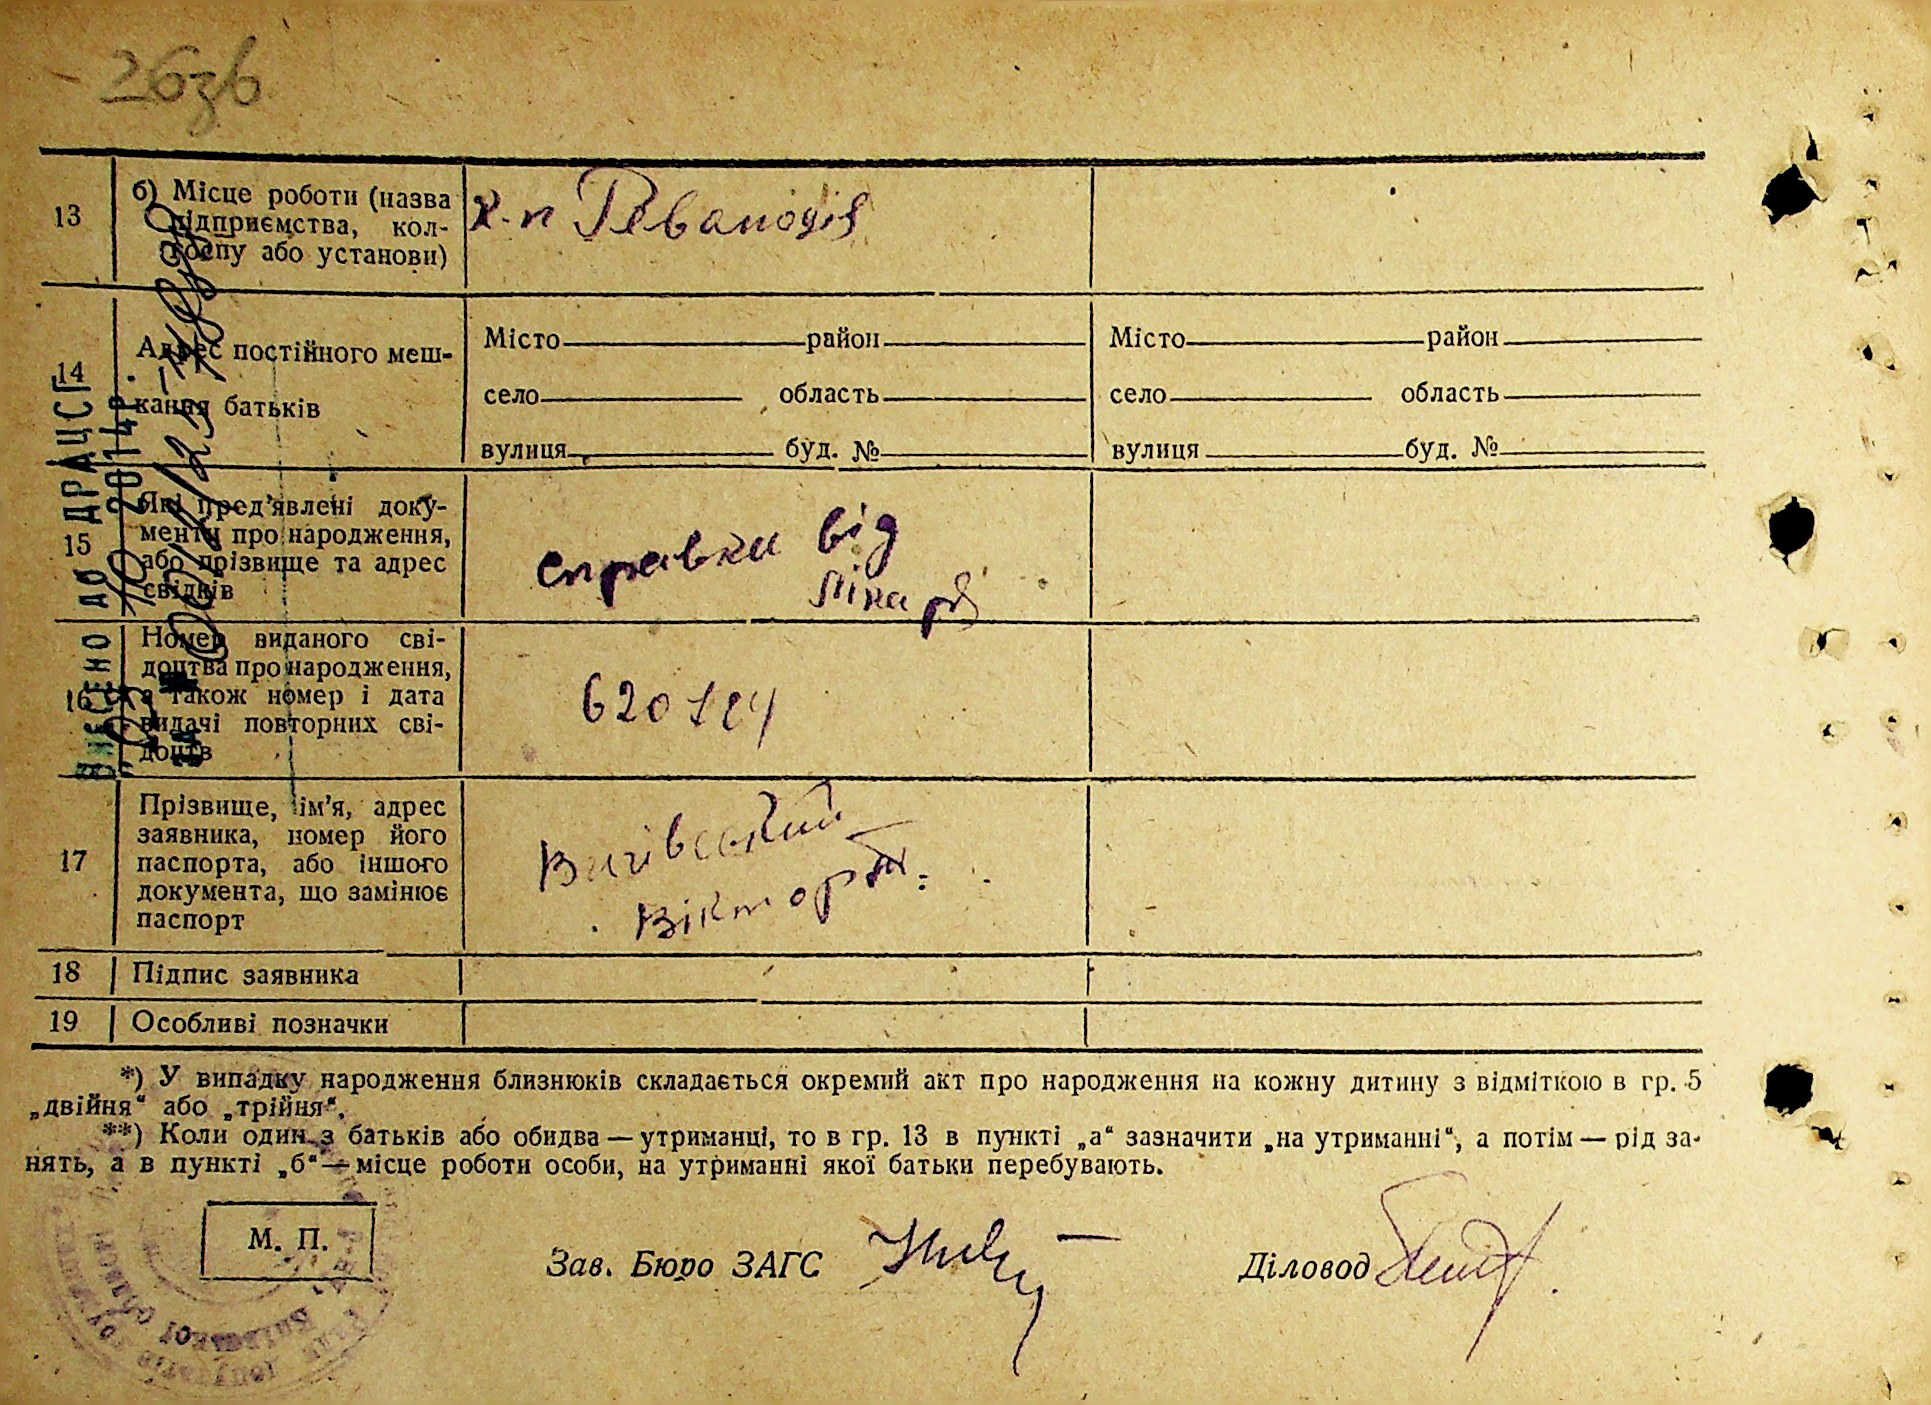 26зв
13
б) Місце роботи (назва
підприємства, кол-
госпу або установи)
14
Адрес постійного меш-
кання батьків
Місто район
село область
вулиця буд. №
Місто район
село область
вулиця буд. №
15
Які пред'явлені доку-
менти про народження,
або прізвище та адрес
свідків
справки від
лікаря
16
Номер виданого сві-
доцтва про народження,
а також номер і дата
видачі повторних сві-
доцтв
620124
17
Прізвище, ім'я, адрес
заявника, номер його
паспорта, або іншого
документа, що замінює
паспорт
Вигівський
Віктор
18
Підпис заявника
19
Особливі позначки
ВНЕСЕНО ДО ДРАЦСГ
2014р.
*) У випадку народження близнюків складається окремий акт про народження на кожну дитину з відміткою в гр. 5
„двійня“ або „трійня“.
**) Коли один з батьків або обидва — утриманці, то в гр. 13 в пункті „а“ зазначити „на утриманні“, а потім — рід за-
нять, а в пункті „б“ — місце роботи особи, на утриманні якої батьки перебувають.
М. П.
Зав. Бюро ЗАГС
Діловод